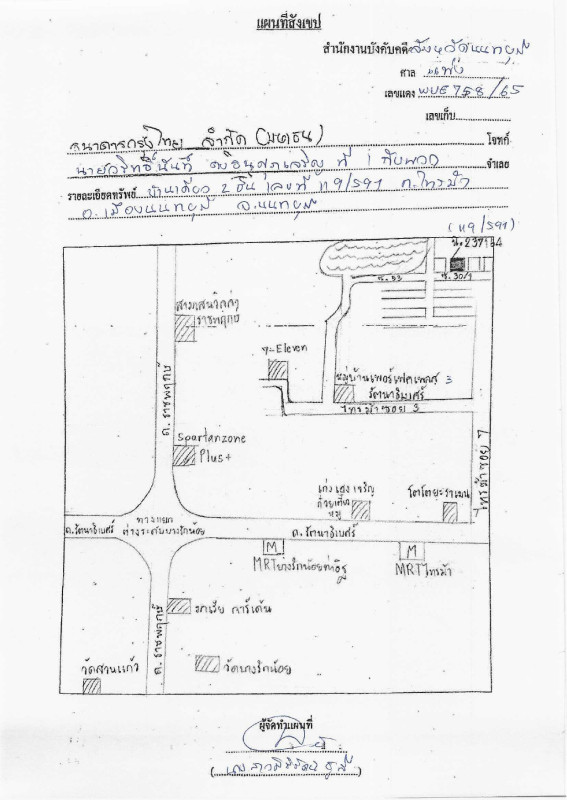 แผนที่สังเขป
สำนักงานบังคับคดี จังหวัดนนทบุรี
ศาล แพ่ง
เลขแดง ผบE758/65
เลขเก็บ
ธนาคารกรุงไทย จำกัด (มหาชน) โจทก์
นาย ที่ 1 กับพวก จำเลย
รายละเอียดทรัพย์ บ้านเดี่ยว 2 ชั้น เลขที่ 119/591 ต.ไทรม้า
อ.เมืองนนทบุรี จ.นนทบุรี
(119/591)
น.237134
ซ.53
ซ.30/1
ราชพฤกษ์
7-Eleven
หมู่บ้านเพอร์เฟคเพลส 3
รัตนาธิเบศร์
ไทรม้าซอย 3
ถ.ราชพฤกษ์
Spartanzone
Plus+
ไทรม้าซอย 7
เก่ง เฮง เจริญ
ก๋วยเตี๋ยว
หมู
โตโตยะราเมน
ทางแยก
ต่างระดับบางรักน้อย
ถ.รัตนาธิเบศร์
ถ.รัตนาธิเบศร์
M
M
MRTบางรักน้อยท่าอิฐ
MRTไทรม้า
การ์เด้น
ถ.ราชพฤกษ์
วัดบางรักน้อย
วัดสวนแก้ว
ผู้จัดทำแผนที่